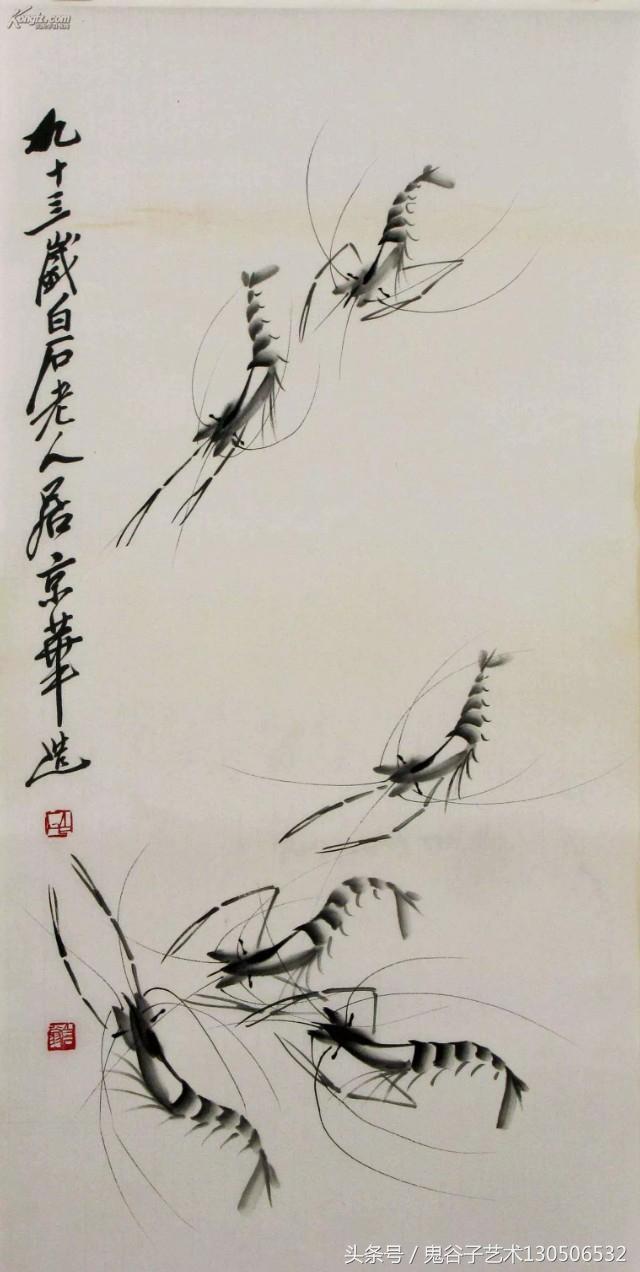 Kongfz.com
九十三歲白石老人居京華造
头条号 / 鬼谷子艺术130506532